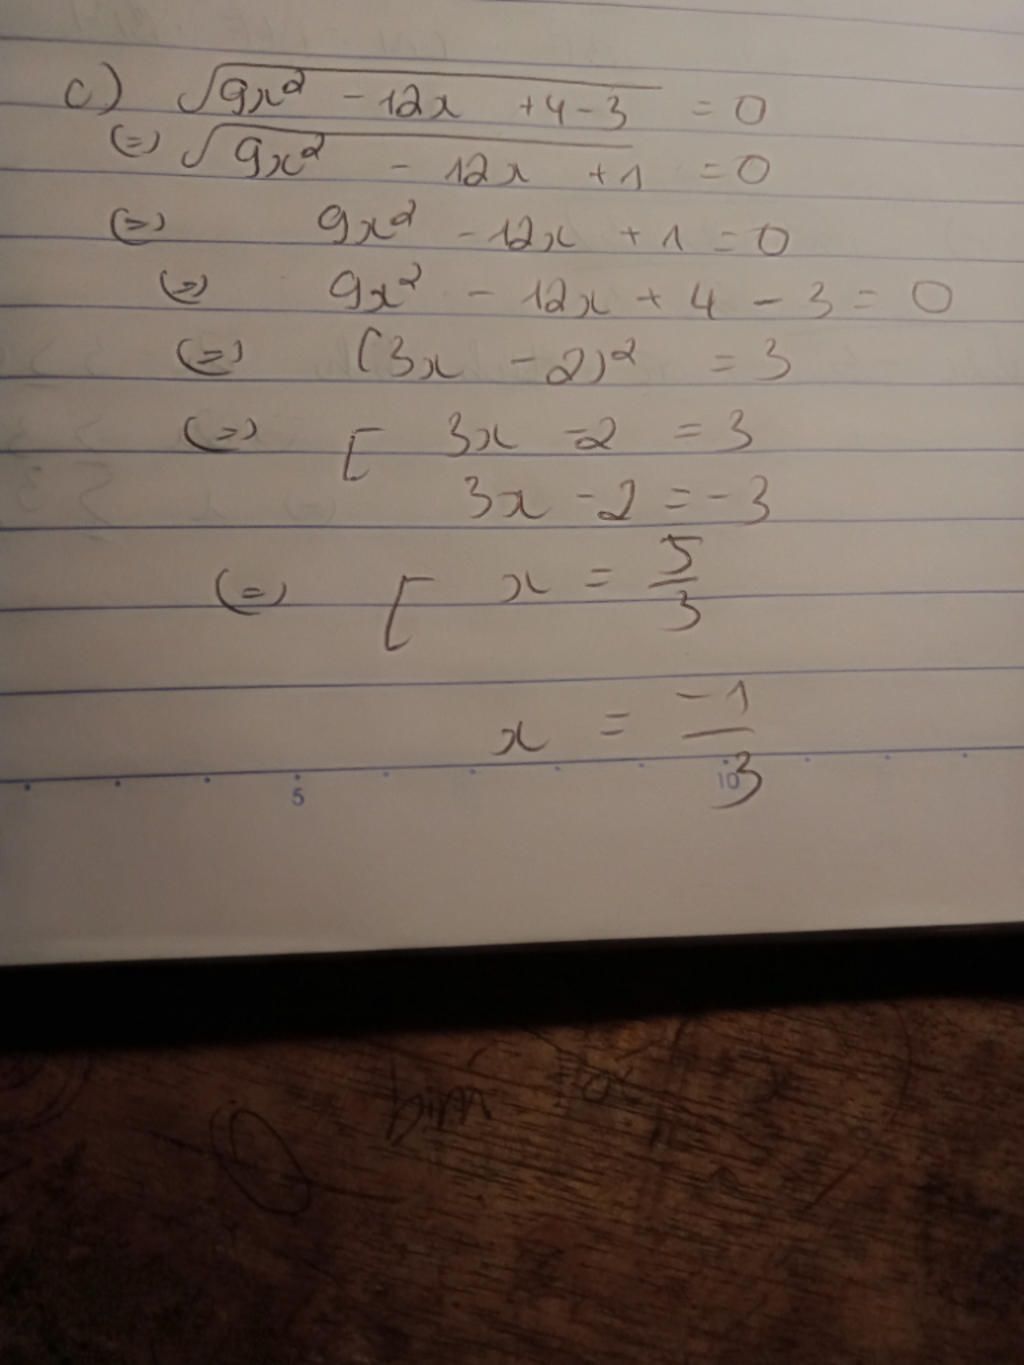 c) √(9x² - 12x + 4 - 3) = 0
(=) √(9x² - 12x + 1) = 0
(=) 9x² - 12x + 1 = 0
(=) 9x² - 12x + 4 - 3 = 0
(=) (3x - 2)² = 3
(=) [ 3x - 2 = 3
3x - 2 = -3
(=) [ x = 5/3
x = -1/3
5 10